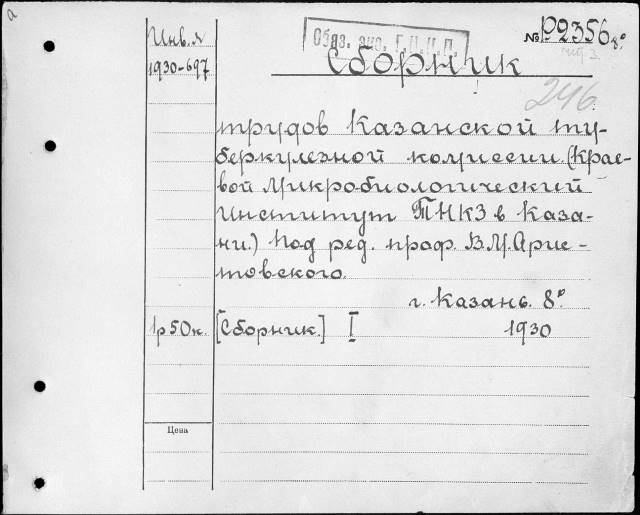 а
Инв. л
1930-697
Обяз. экз. Г.Н.К.П.
№ Р2356 8º
чит 3
Сборник
246
трудов Казанской ту-
беркулезной комиссии. (Крае-
вой Микробиологический
Институт ТНКЗ в Каза-
ни.) Под ред. проф. В.М. Арис-
товского.
г. Казань. 8º
1р50к. [Сборник.] I 1930
Цена